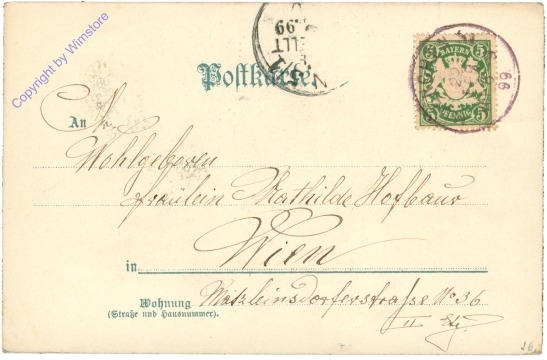 Copyright by Wimstore
99
Postkarte
BAYERN
5 5
PFENNIG
99
An
Wohlgeboren
Fräulein Mathilde Hofbaur
Wien
in
Wohnung Matzleinsdorferstrasse No 36
(Straße und Hausnummer).
II
26